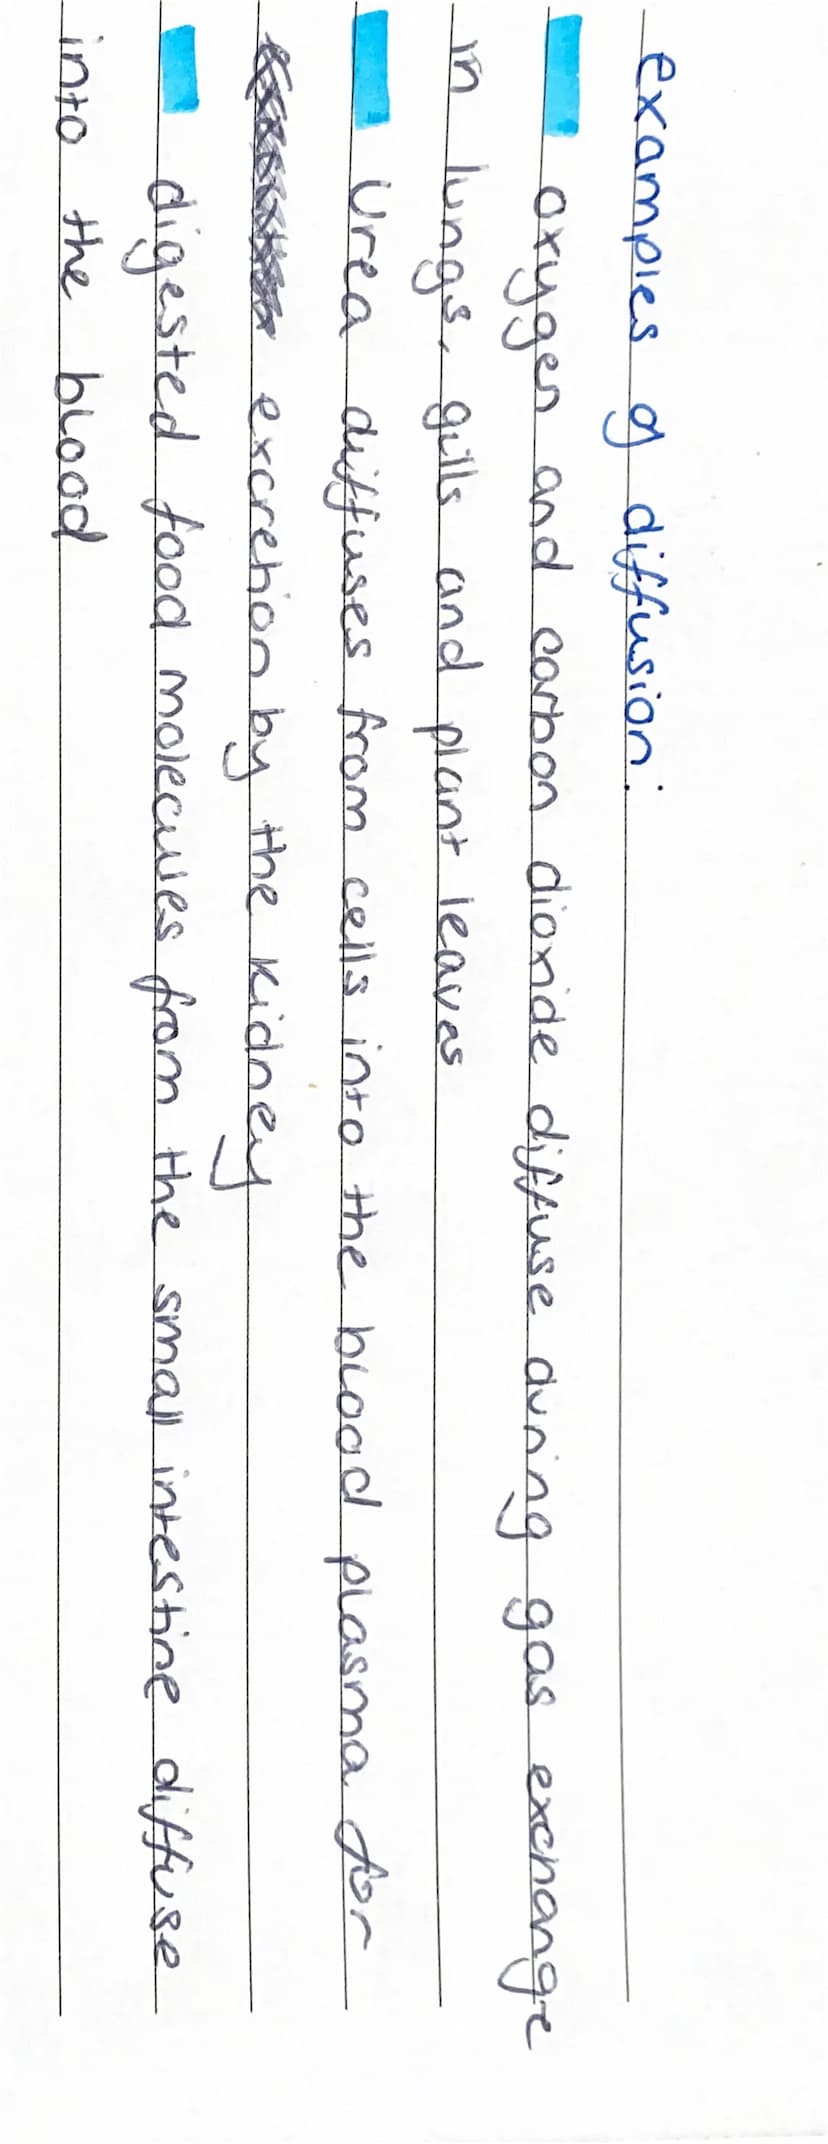 examples of diffusion:
oxygen and carbon dioxide diffuse during gas exchange
in lungs, gills and plant leaves
Urea diffuses from cells into the blood plasma for
excretion by the kidney
digested food molecules from the small intestine diffuse
into the blood